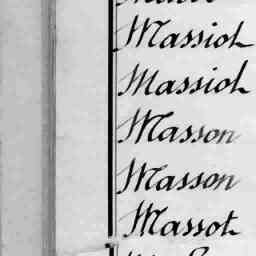 Massiot
Massiot
Masson
Masson
Massot